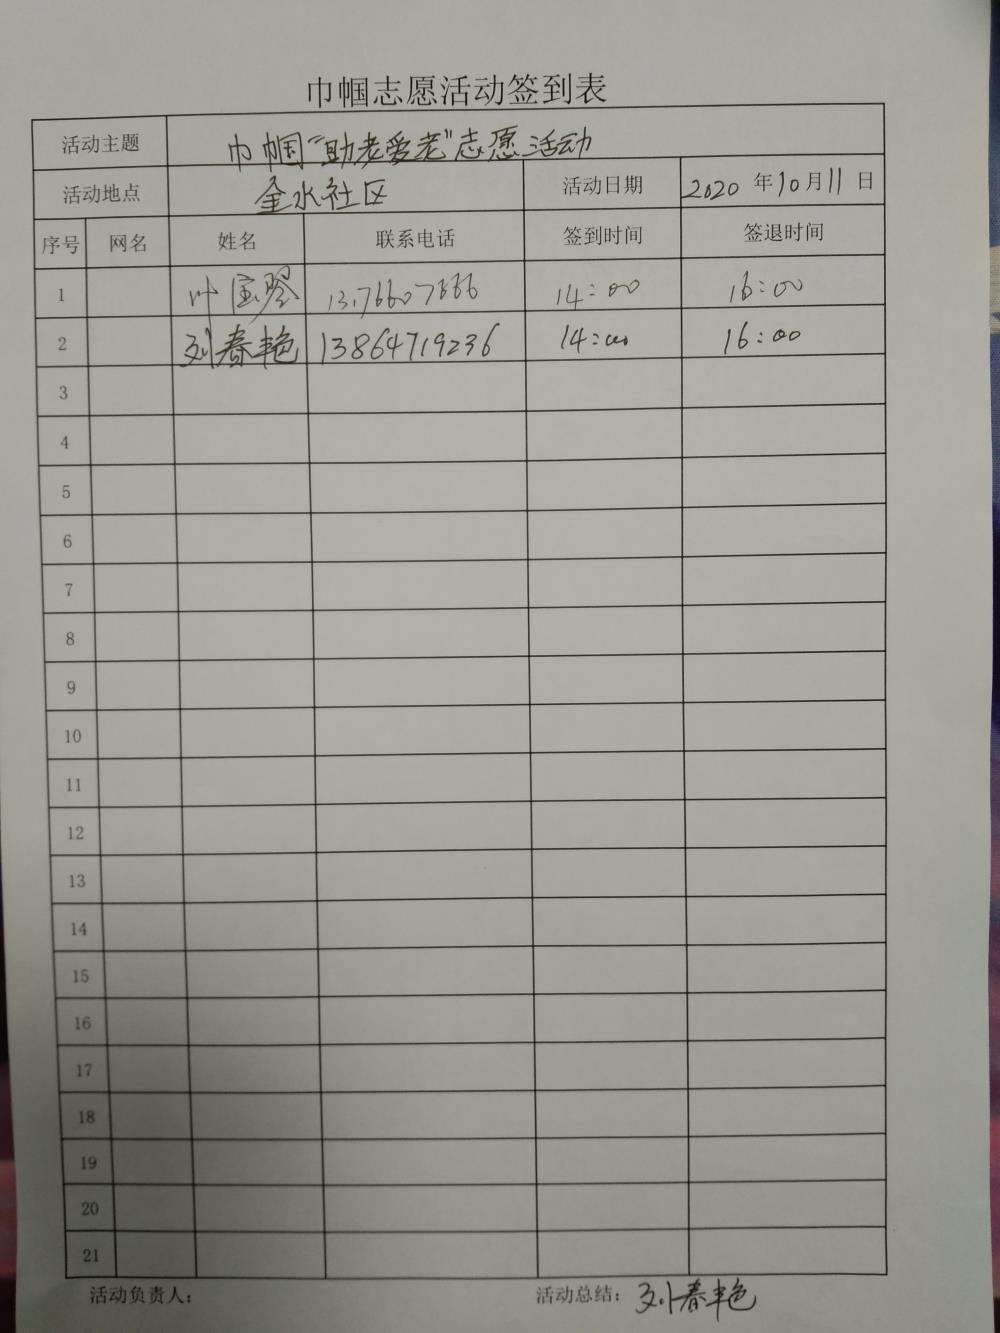 巾帼志愿活动签到表
活动主题 巾帼“助老爱老”志愿活动
活动地点 金水社区 活动日期 2020年10月11日
序号 网名 姓名 联系电话 签到时间 签退时间
1 叶宝琴 14:00 16:00
2 刘春艳 13864719236 14:00 16:00
3
4
5
6
7
8
9
10
11
12
13
14
15
16
17
18
19
20
21
活动负责人： 活动总结：刘春艳